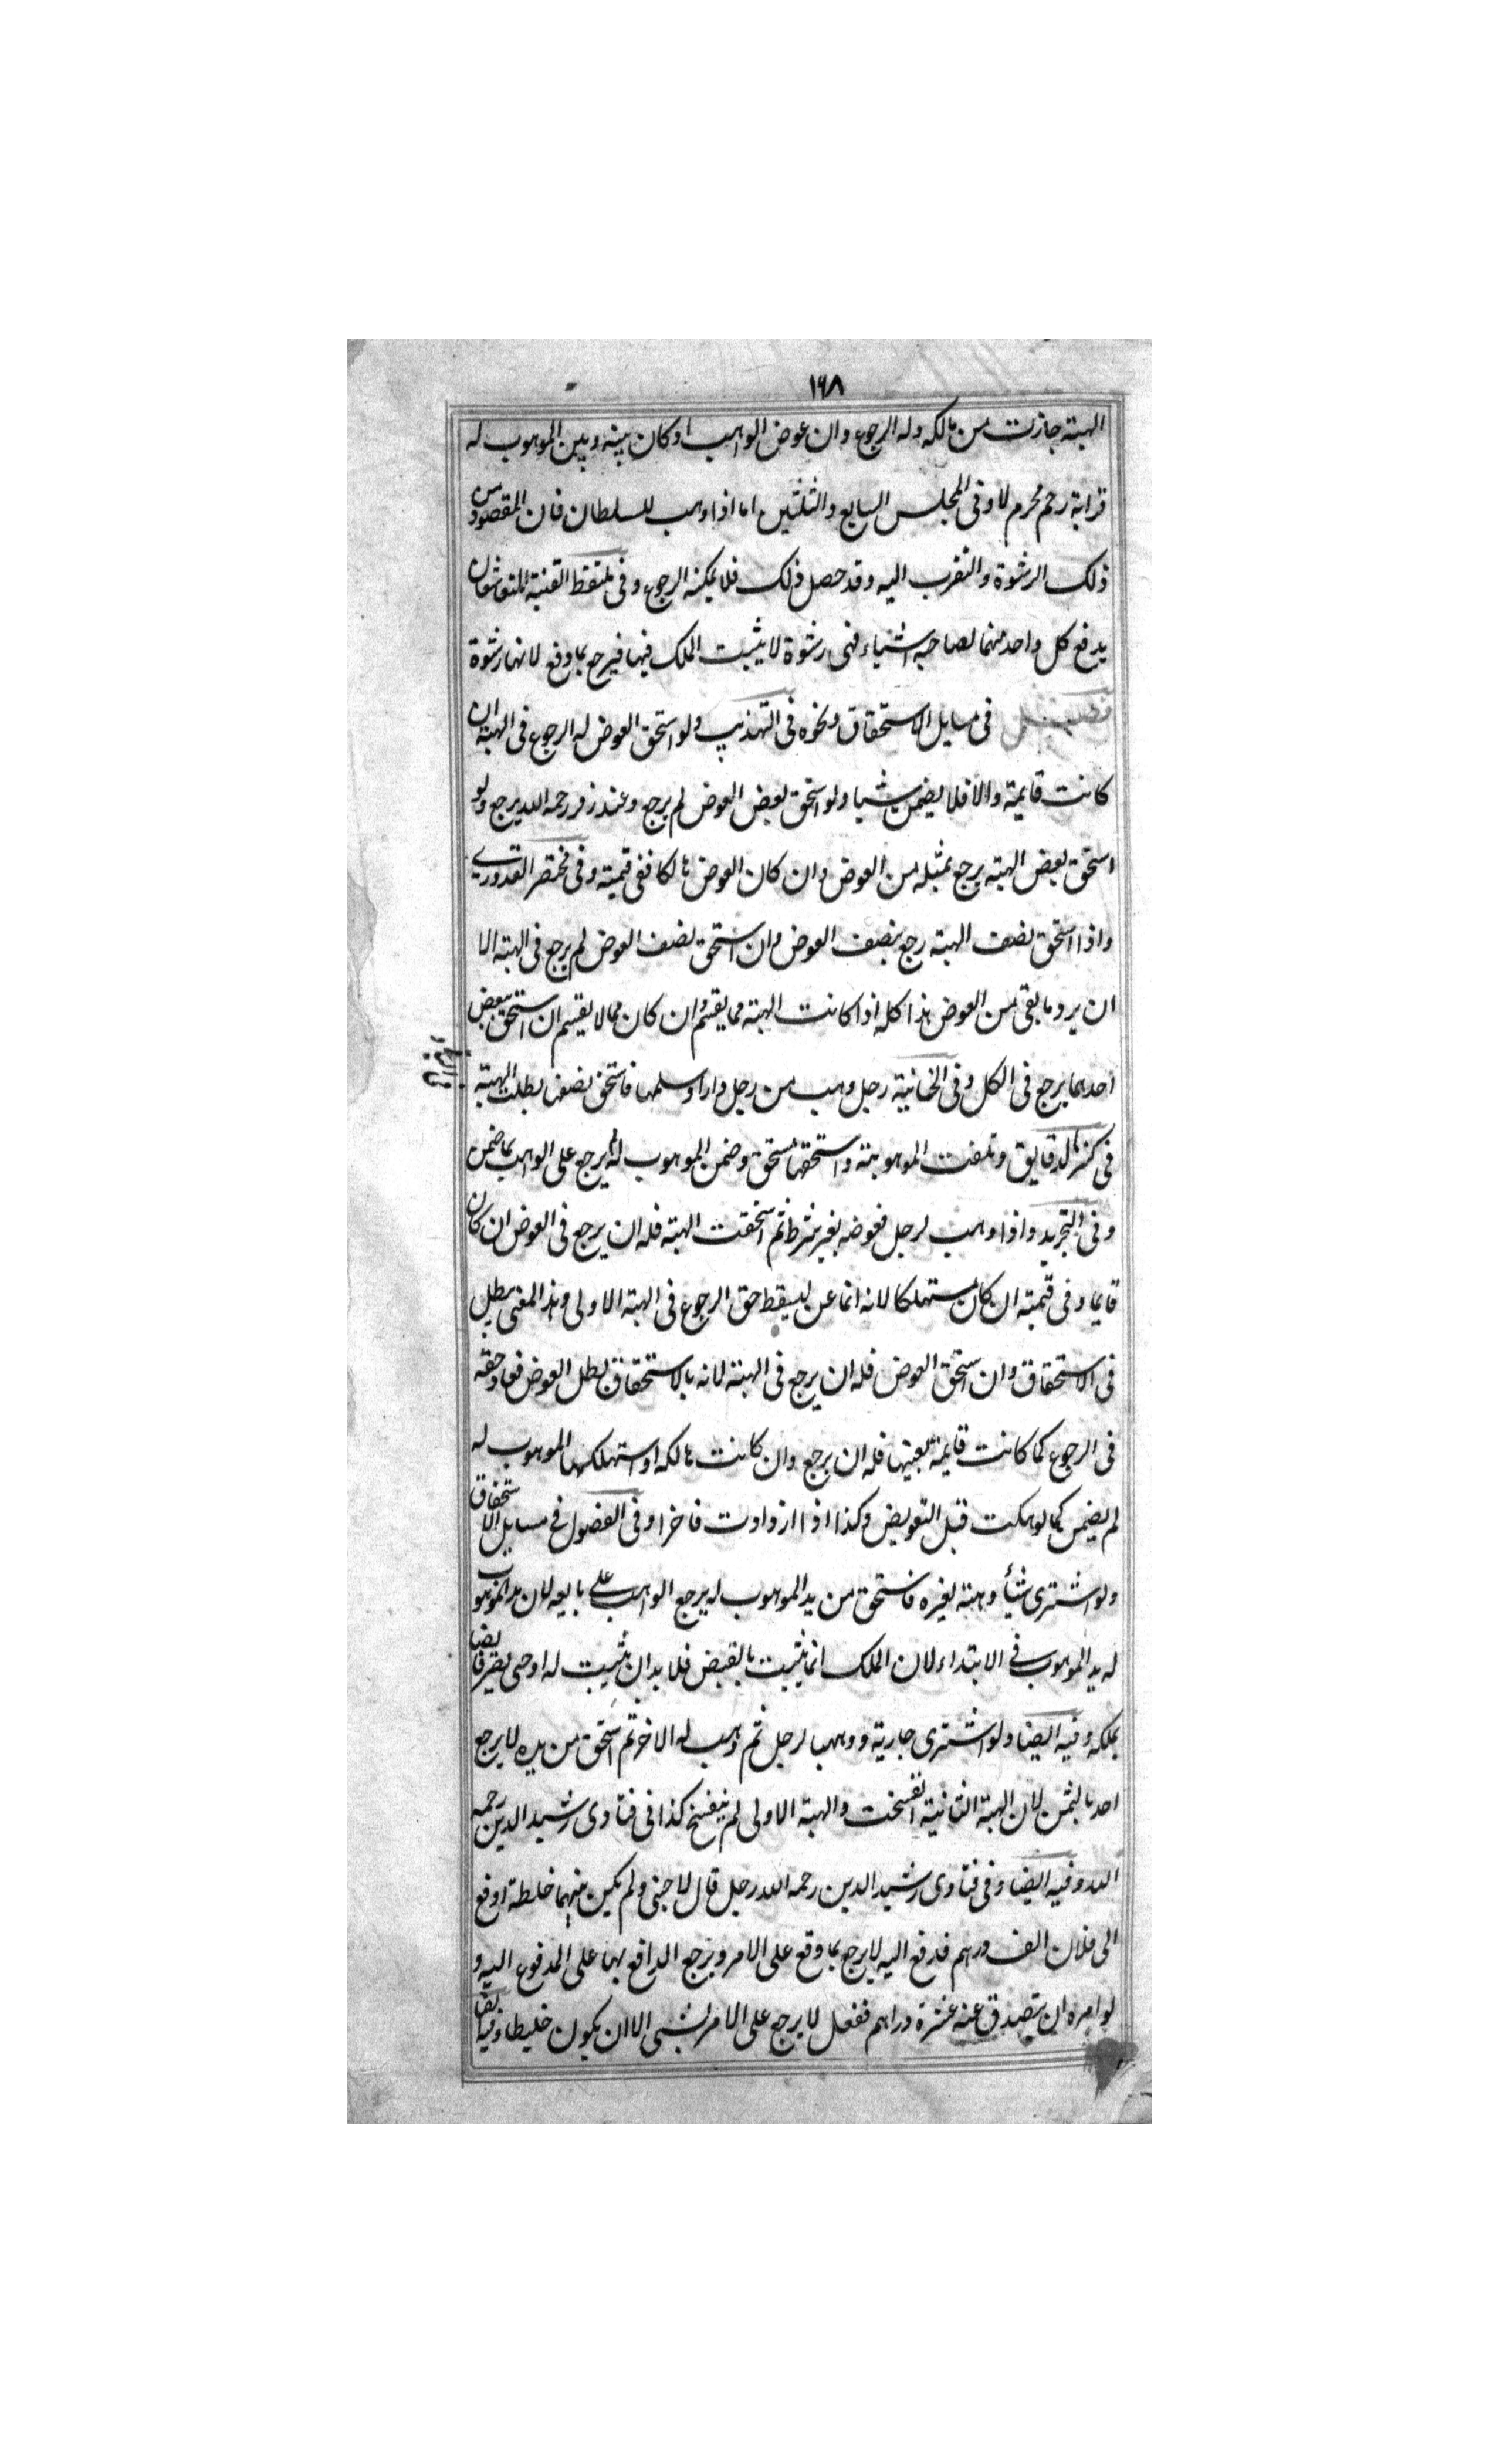 ١٦٨
الهبة جازت من مالكه وله الرجوع وان عوض الواهب او كان بينه وبين الموهوب له
قرابة رحم محرم لا وفى المجلس السابع والثلثين اما اذا وهب للسلطان فان المقصود من
ذلك الرشوة والتقرب اليه وقد حصل ذلك فلا يمكنه الرجوع وفى ملتقط القنية المتعاشقان
يدفع كل واحد منهما لصاحبه اشياء فهى رشوة لا يثبت الملك فيها فيرجع بما دفع لانها رشوة
فصل فى مسايل الاستحقاق ونحوه فى التهذيب ولو استحق العوض له الرجوع فى الهبة ان
كانت قايمة والا فلا يضمن شيا ولو استحق بعض العوض لم يرجع وعند زفر رحمه الله يرجع ولو
استحق بعض الهبة يرجع بمثله من العوض وان كان العوض هالكا ففى قيمته وفى مختصر القدورى
واذا استحق نصف الهبة رجع بنصف العوض وان استحق نصف العوض لم يرجع فى الهبة الا
ان يرد ما بقى من العوض هذا كله اذا كانت الهبة مما يقسم وان كان مما لا يقسم ان استحق بعض
احدهما يرجع فى الكل وفى الخانية رجل وهب من رجل دارا وسلمها فاستحق نصفها بطلت الهبة
فى كنز الدقايق وتلفت الموهوبة واستحقها مستحق وضمن الموهوب له لم يرجع على الواهب بما ضمن
وفى التجريد واذا وهب لرجل فعوضه بغير شرط ثم استحقت الهبة فله ان يرجع فى العوض ان كان
قايما وفى قيمته ان كان مستهلكا لانه انما عن ليسقط حق الرجوع فى الهبة الاولى وهذا المعنى يبطل
فى الاستحقاق وان استحق العوض فله ان يرجع فى الهبة لانه بالاستحقاق بطل العوض فعاد حقه
فى الرجوع كما كانت قايمة بعينها فله ان يرجع وان كانت هالكه او استهلكها الموهوب له
لم يضمن كما لو هلكت قبل التعويض وكذا اذا ازدادت فاخرا وفى الفصول فى مسايل الاستحقاق
ولو اشترى شيأ وهبة لغيره فاستحق من يد الموهوب له يرجع الواهب على بايعه لان يد الموهوب
له يد الموهوب فى الابتداء لان الملك انما يثبت بالقبض فلا بد ان يثبت له اوحى يصير قابضا
بملكه وفيه ايضا ولو اشترى جارية ووهبها لرجل ثم وهب له الاخر ثم استحق من يده لا يرجع
احد بالثمن لان الهبة الثانية انفسخت والهبة الاولى لم ينفسخ كذا فى فتاوى رشيد الدين رحمه
الله وفيه ايضا وفى فتاوى رشيد الدين رحمه الله رجل قال لاجنبى ولم يكن بينهما خلطة ادفع
الى فلان الف درهم فدفع اليه لا يرجع بما دفع على الامر ويرجع الدافع بها على المدفوع اليه و
لو امره ان يتصدق عنه عشرة دراهم ففعل لا يرجع على الامر بشى الا ان يكون خليطا وفيه ايضا